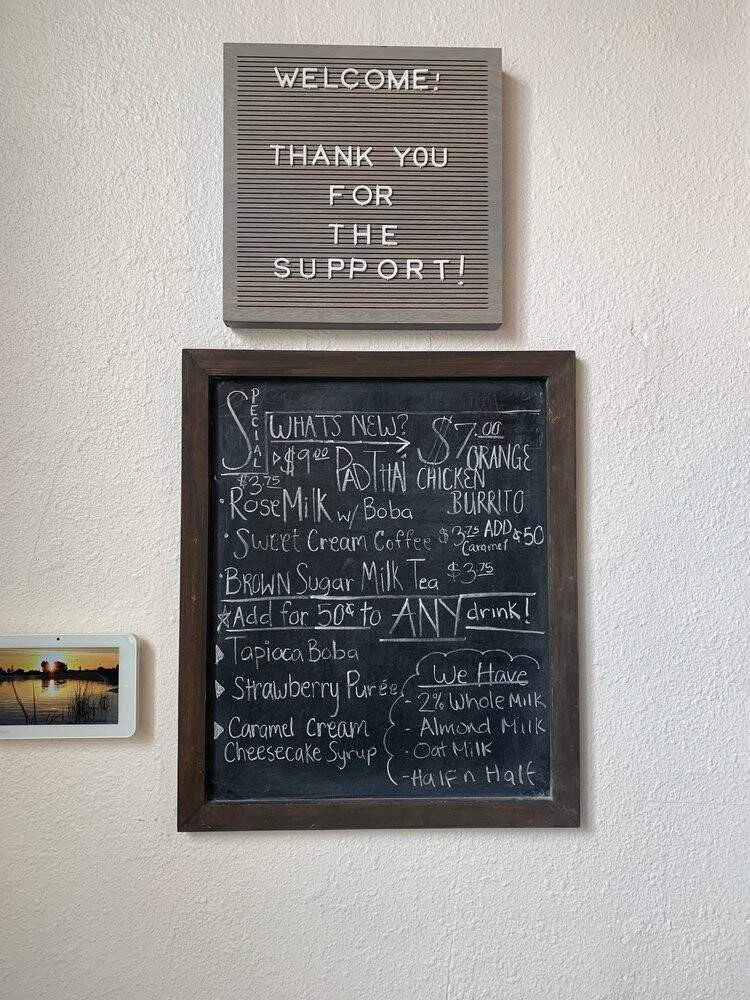 WELCOME!
THANK YOU
FOR
THE
SUPPORT!
SPECIAL
WHATS NEW?
$9.00 PAD THAI
$7.00
ORANGE
CHICKEN
BURRITO
$3.75
· Rose Milk w/ Boba
· Sweet Cream Coffee $3.75 ADD Caramel $.50
· BROWN Sugar Milk Tea $3.75
☆Add for 50¢ to ANY drink!
Tapioca Boba
Strawberry Purée
Caramel Cream
Cheesecake Syrup
We Have
- 2% Whole Milk
- Almond Milk
- Oat Milk
- Half n Half